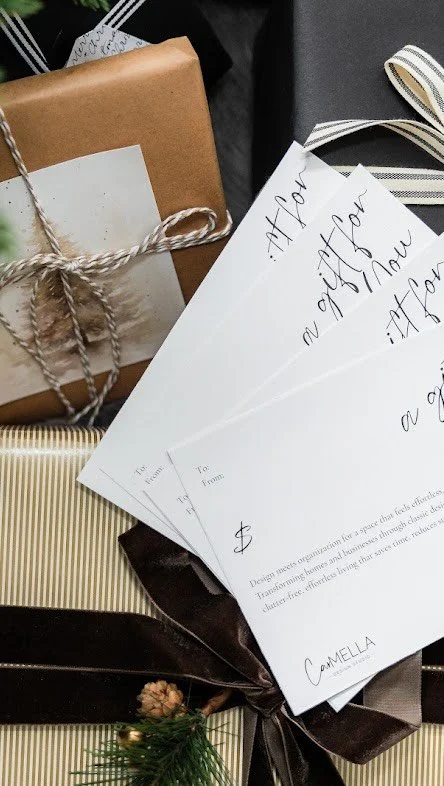 it for
a gift for
you
it for
a gi
To:
From:
To:
From:
To:
From:
$
Design meets organization for a space that feels effortless
Transforming homes and businesses through classic
clutter-free, effortless living that saves time, reduces
CarMELLA
DESIGN STUDIO